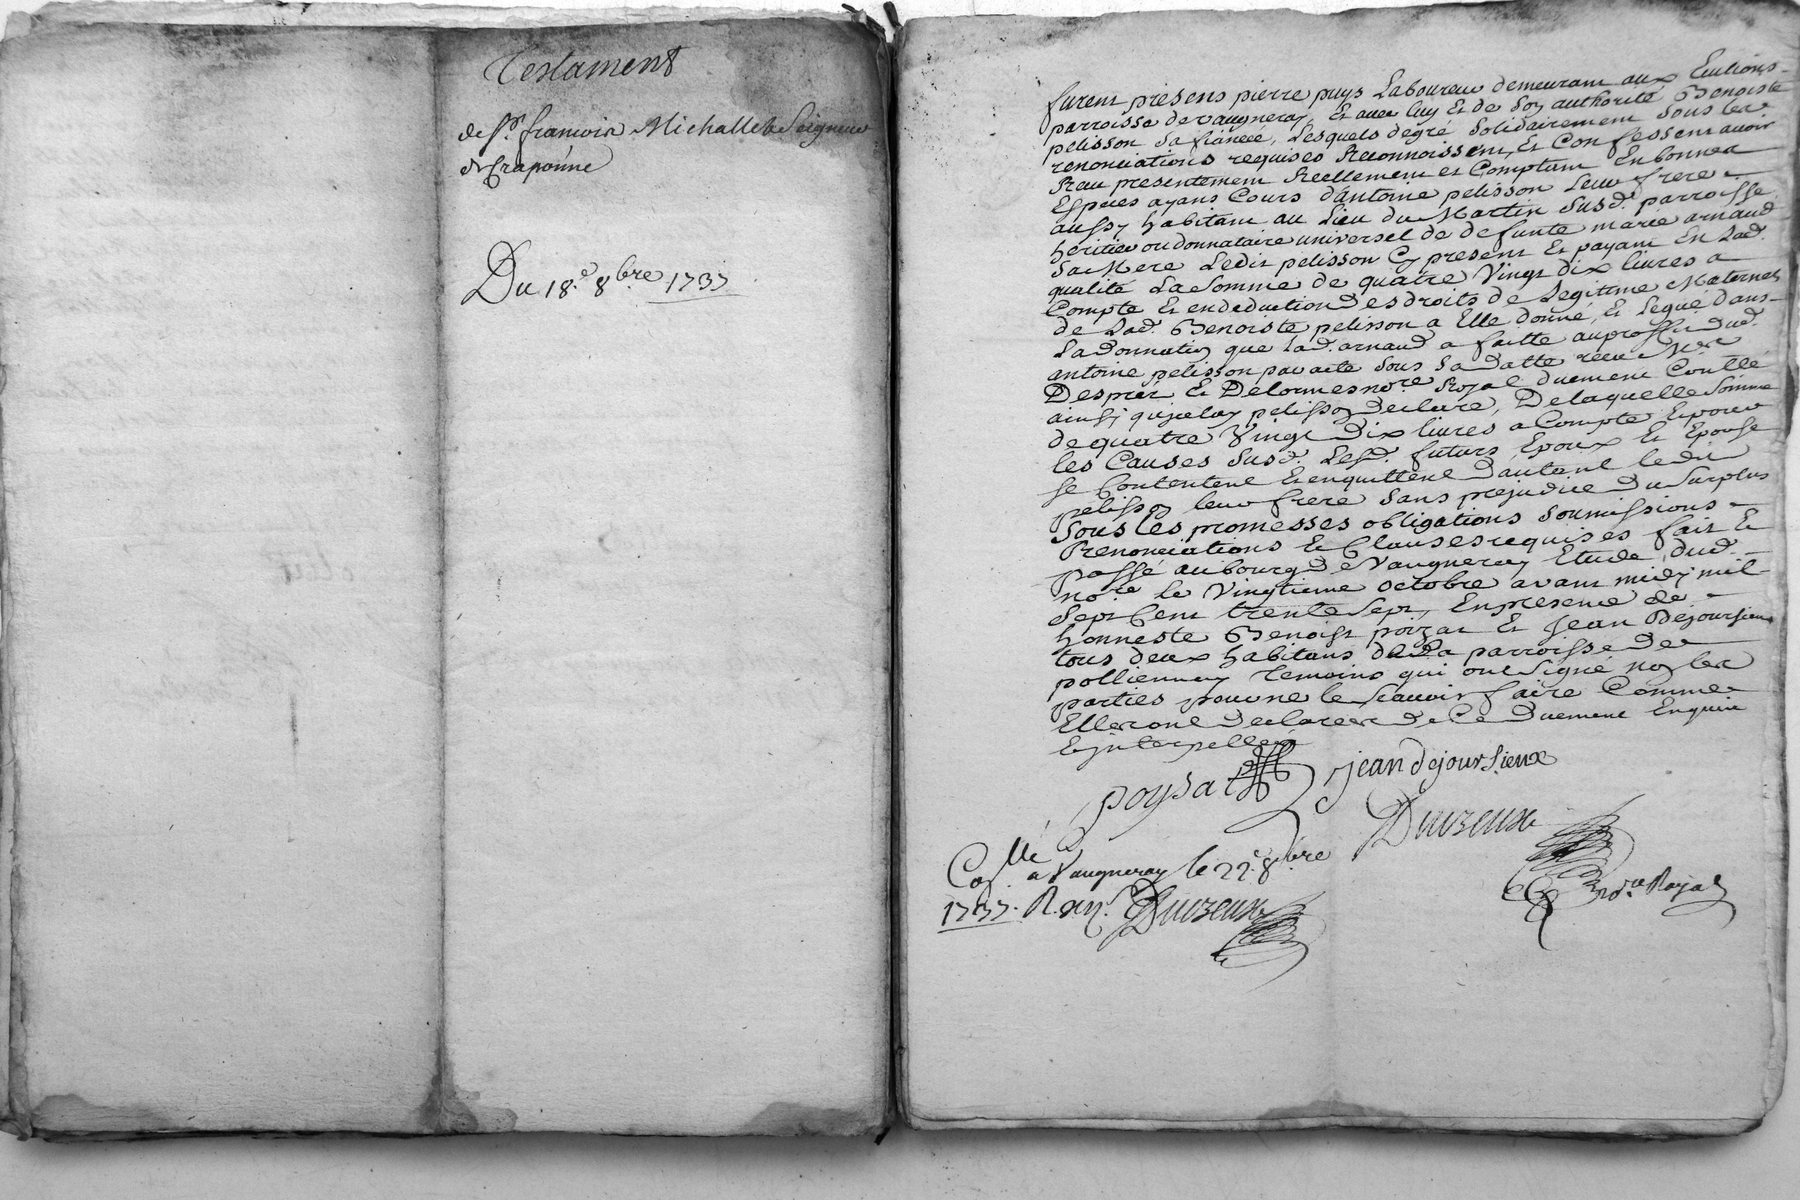 Testament
de Sr. francois Michallet Seigneur
de Craponne
Du 18e. 8bre 1737
furent presens pierre puys Laboureur demeurant aux
parroisse de vaugneray, Et avec luy Et de Son authorité Benoiste
pelisson Sa fiancée, Lesquels degré Solidairement Sous les
renonciations requises Reconnoissent, Et Confessent avoir
Receu presentement Reellement et Comptant En bonnes
Especes ayans Cours d'antoine pelisson Leur frere
aussy habitant au Lieu du Martin Susd. parroisse
heritier ou donnataire universel de defunte marie arnaud
Sa Mere Ledit pelisson Cy present Et payant En Lad.
qualité La Somme de quatre Vingt dix livres a
Compte Et en deduction des droits de Legitime Maternels
de Lad. Benoiste pelisson a Elle donné, Et Legué dans
La donnation que lad. arnaud a faitte au proffit dud.
antoine pelisson par acte Sous Sa datte receu Mes
Desprez Et Delorme nore. Royal duement Conllé
ainsi qu'jceluy pelisson declare, De laquelle Somme
de quatre Vingt Dix livres a Compte Et pour
les Causes Susd. Lesd. futurs Epoux Et Epouse
se Contentent Et enquittent d'autant ledit
pelisson leur frere Sans prejudice du Surplus
Sous les promesses obligations Soumissions
Renonciations Et Clauses requises fait Et
passé au bourg de Vaugneray Etude dud.
nore. le Vingtieme octobre avant midy mil
Sept Cent trente Sept, En presence de
honneste Benoist poizat Et Jean Dejoursieux
tous deux habitans de La parroisse de
pollienay temoins qui ont Signé non les
parties pour ne le Scavoir faire Comme
Elles ont declarées de Ce duement Enquis
Et jnterpellées
poysat jean dejoursieux
Duvzeux
Conllé a Vaugneray le 22e. 8bre
1737. R. Duvzeux
nore. Royal